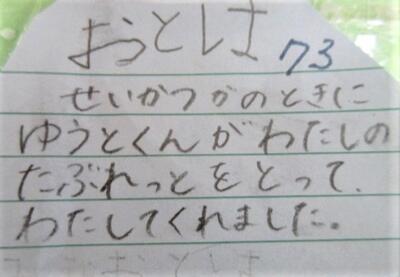 おうとしま
73
せいかつかのときに
ゆうとくんがわたしの
たぶれっとをとって、
わたしてくれました。